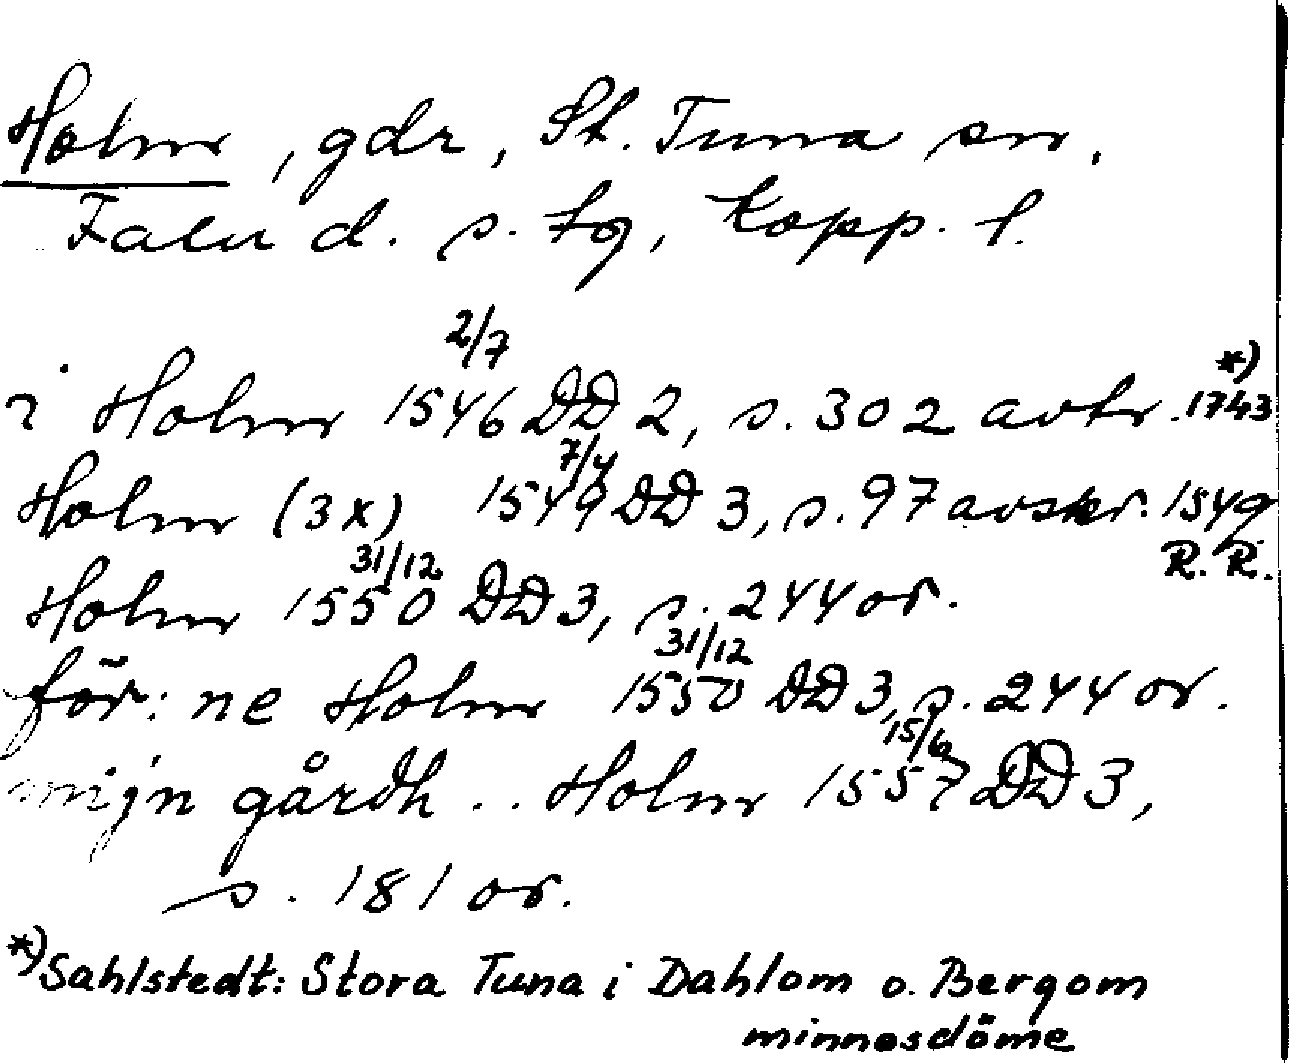 Holm, gdr, St. Tuna sn.
Falu d. s. tg, Kopp. l.
i Holm 1546 2/7 DD 2, s. 302 avtr. 1743 *)
Holm (3x) 1549 7/4 DD 3, s. 97 avskr. 1549
R. R.
Holm 1550 31/12 DD 3, s. 244 or.
för: ne Holm 1550 31/12 DD 3, s. 244 or.
mijn gårdh .. Holm 1557 15/6 DD 3,
s. 181 or.
*) Sahlstedt: Stora Tuna i Dahlom o. Bergom
minnesdöme